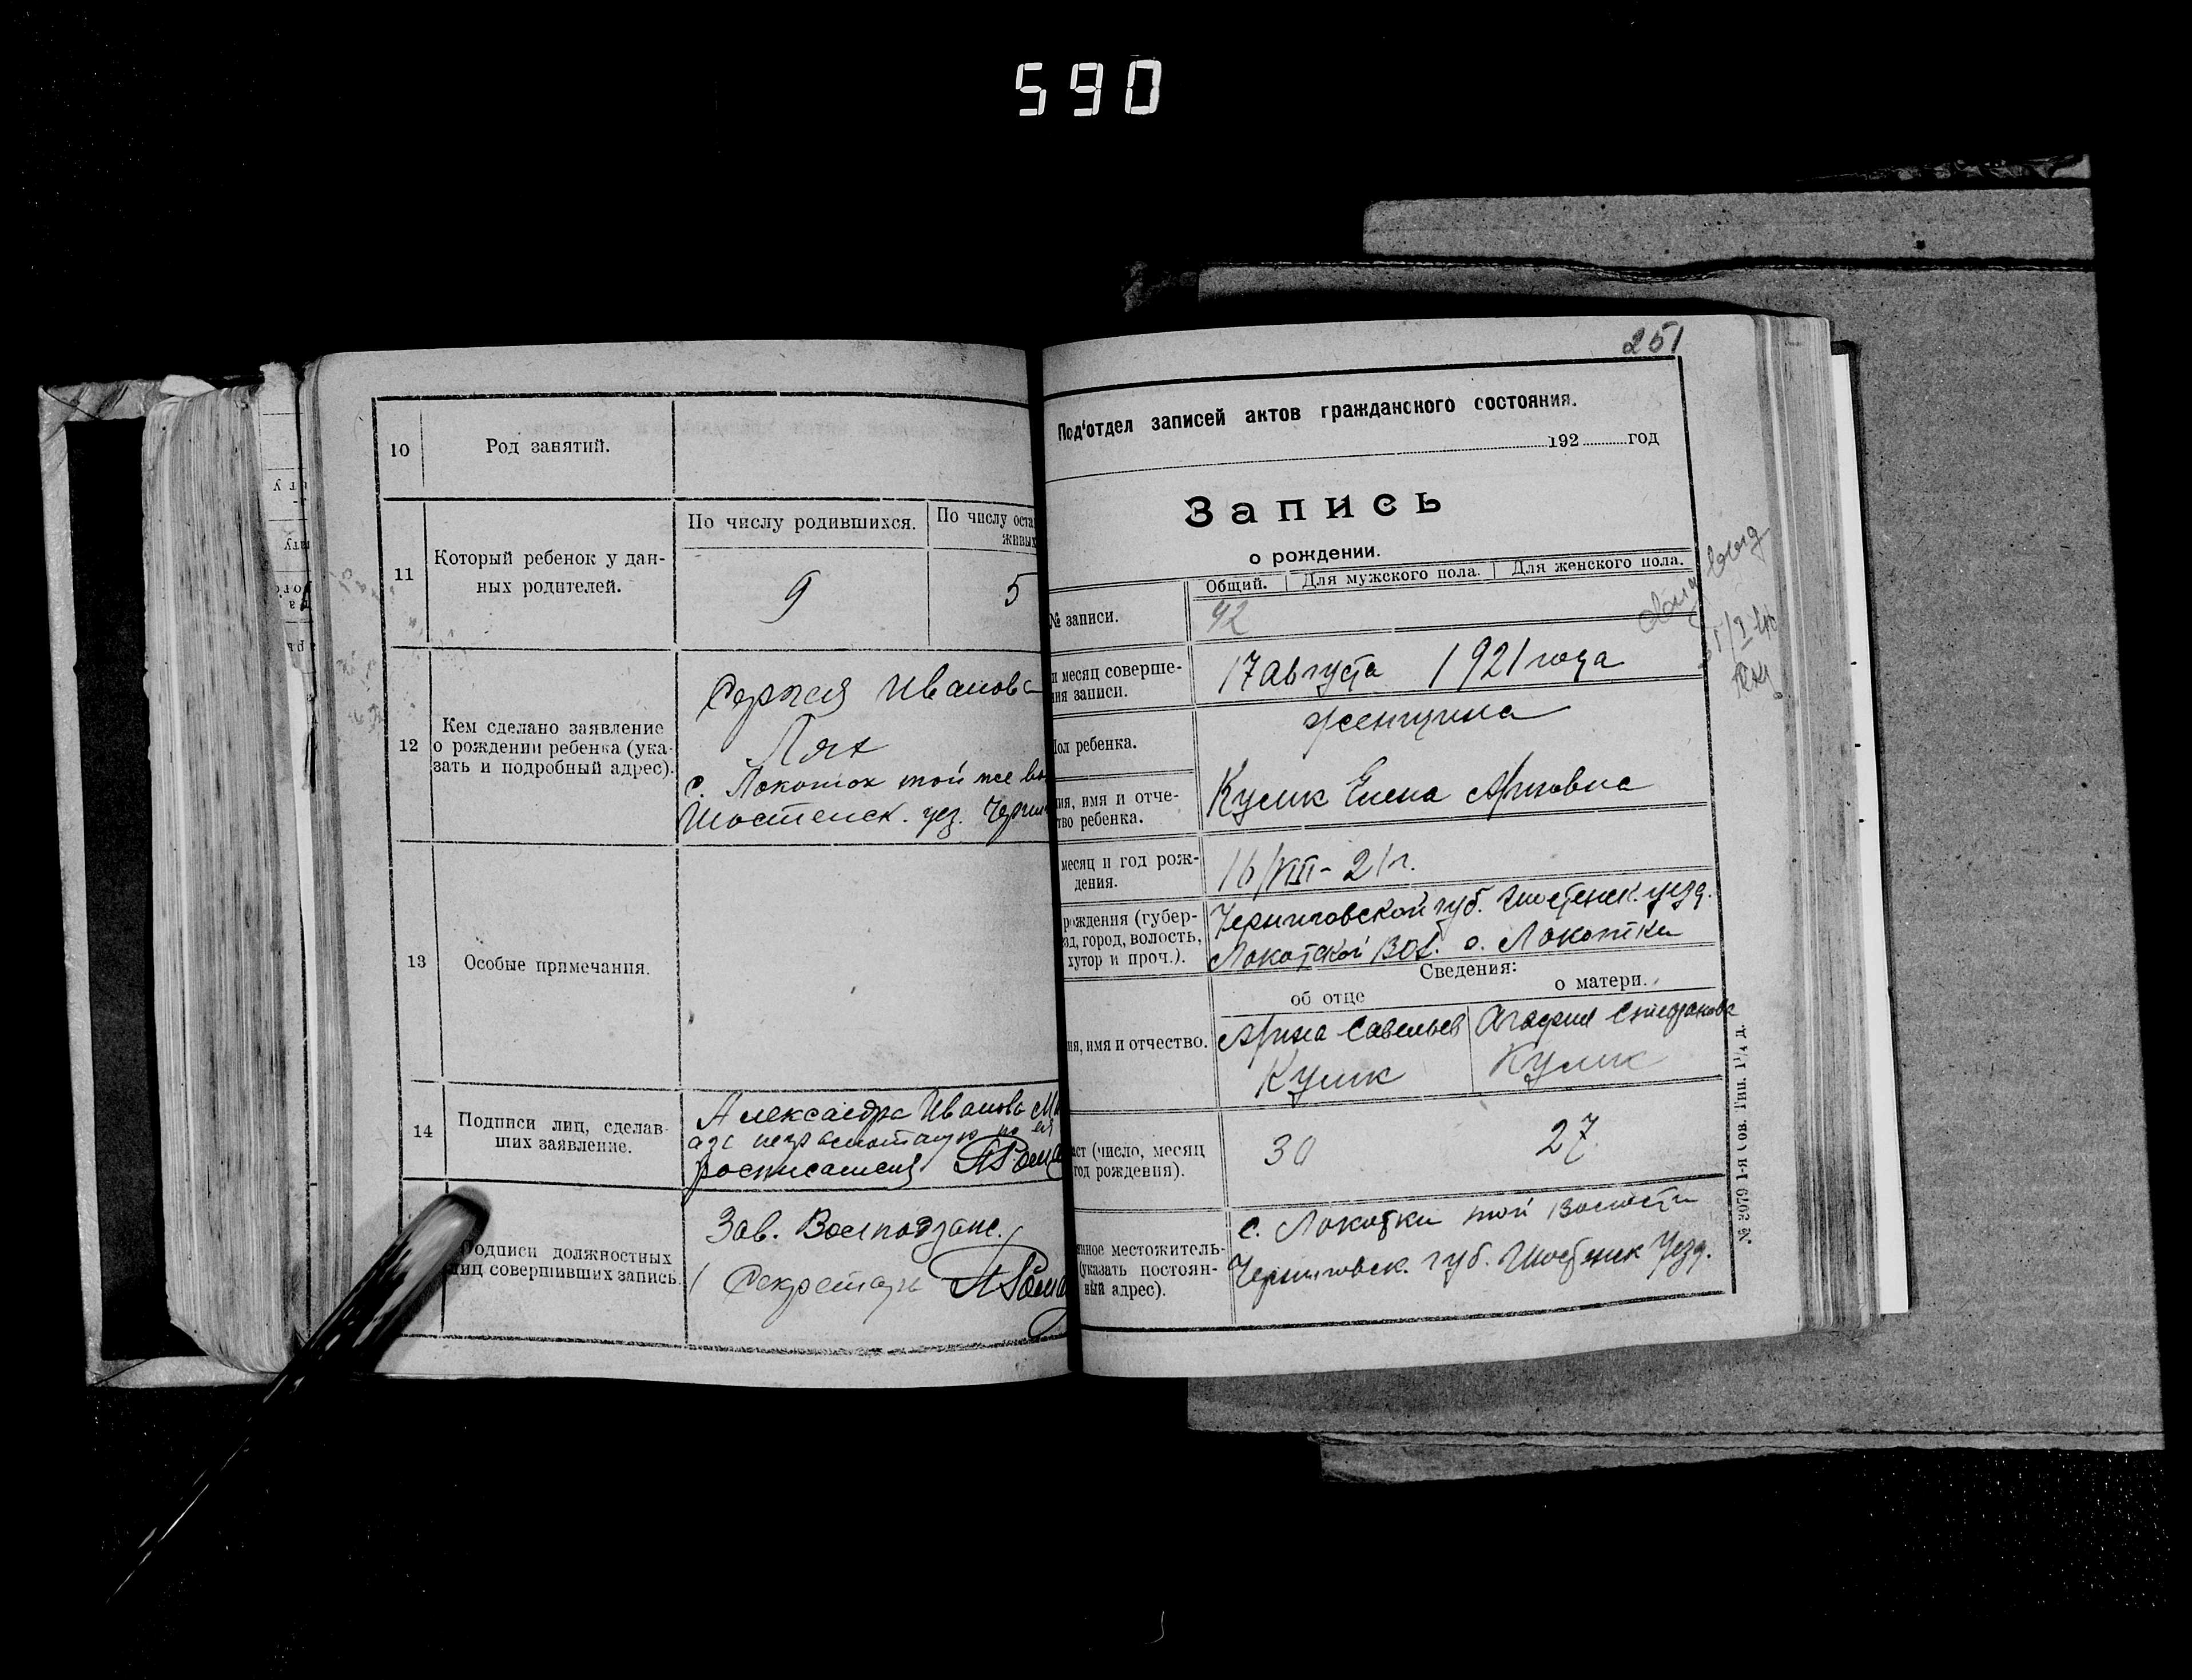 590
10
Род занятий.
11
Который ребенок у дан-
ных родителей.
По числу родившихся.
По числу оста
живых
9
5
12
Кем сделано заявление
о рождении ребенка (ука-
зать и подробный адрес).
Сергея Иванова
Лях
с. Локоток той же во
Шостенск. уез. Черни
13
Особые примечания.
14
Подписи лиц, сделав-
ших заявление.
Александра Иванова
росписался
Подписи должностных
лиц совершивших запись.
Зав.
Секретарь
251
Под'отдел записей актов гражданского состояния.
192 год
Запись
о рождении.
Общий. Для мужского пола. Для женского пола.
№ записи.
42
и месяц соверше-
ния записи.
17 Августа 1921 года
Пол ребенка.
женщина
ия, имя и отче-
тво ребенка.
Кулик Елена
месяц и год рож-
дения.
16/VIII-21г.
рождения (губер-
зд, город, волость,
хутор и проч.).
Черниговской губ. Шостенск. уезд.
Локотской вол. с. Локотки
Сведения:
об отце
о матери.
ия, имя и отчество.
Савельев
Кулик
Агафия Степанова
Кулик
аст (число, месяц
год рождения).
30
27
нное местожитель-
(указать постоян-
ный адрес).
с. Локотки той волости
Черниговск. губ. Шостенск уезд.
№ 3079 1-я Сов. Тип. 1¹/₄ д.